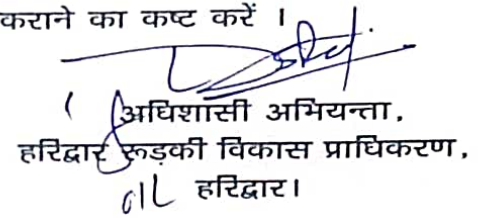 कराने का कष्ट करें ।
अधिशासी अभियन्ता,
हरिद्वार रूड़की विकास प्राधिकरण,
हरिद्वार।